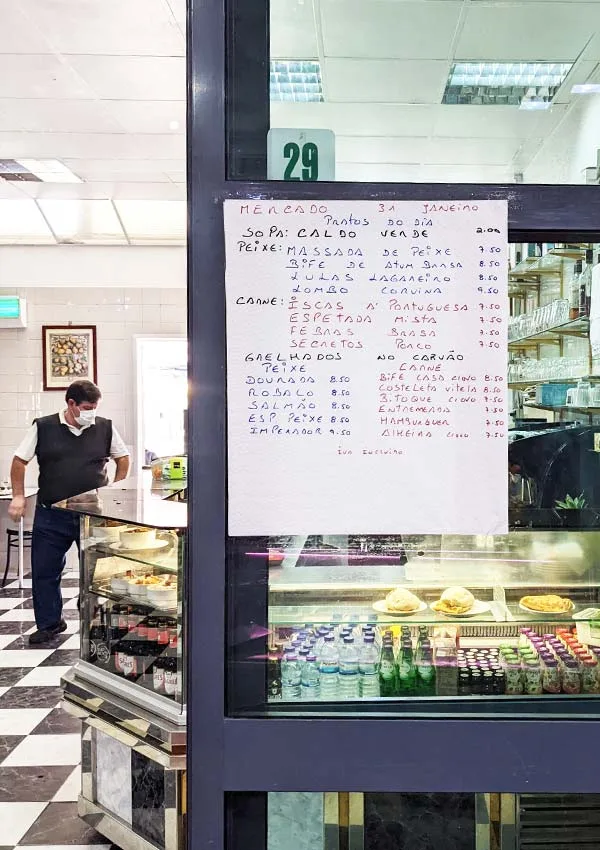 29
MERCADO 31 JANEIRO
PRATOS DO DIA
SOPA: CALDO VERDE 2.00
PEIXE: MASSADA DE PEIXE 7.50
BIFE DE ATUM BRASA 8.50
LULAS LAGAREIRO 8.50
LOMBO CORVINA 9.50
CARNE: ISCAS A' PORTUGUESA 7.50
ESPETADA MISTA 7.50
FEBRAS BRASA 7.50
SECRETOS PORCO 7.50
GRELHADOS NO CARVÃO
PEIXE
DOURADA 8.50
ROBALO 8.50
SALMÃO 8.50
ESP. PEIXE 8.50
IMPERADOR 9.50
CARNE
BIFE CASA C/OVO 8.50
COSTELETA VITELA 8.50
BITOQUE C/OVO 7.50
ENTREMEADA 7.50
HAMBURGUER 7.50
ALHEIRA C/OVO 7.50
IVA INCLUIDO